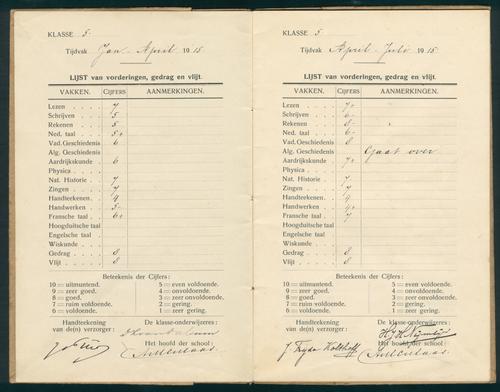 KLASSE 5
Tijdvak Jan - April 1915
LIJST van vorderingen, gedrag en vlijt.
VAKKEN. CIJFERS AANMERKINGEN.
Lezen 7
Schrijven 5
Rekenen 5
Ned. taal 5+
Vad. Geschiedenis 6
Alg. Geschiedenis
Aardrijkskunde 6
Physica
Nat. Historie 7
Zingen 7
Handteekenen 4
Handwerken 5-
Fransche taal 6+
Hoogduitsche taal
Engelsche taal
Wiskunde
Gedrag 8
Vlijt 8
Beteekenis der Cijfers:
10 = uitmuntend. 5 = even voldoende.
9 = zeer goed. 4 = onvoldoende.
8 = goed. 3 = zeer onvoldoende.
7 = ruim voldoende 2 = gering.
6 = voldoende. 1 = zeer gering.
Handteekening De klasse-onderwijzeres:
van de(n) verzorger:
Het hoofd der school:
KLASSE 5.
Tijdvak April - Juli 1915
LIJST van vorderingen, gedrag en vlijt.
VAKKEN. CIJFERS AANMERKINGEN.
Lezen 7+
Schrijven 6-
Rekenen 8-
Ned. taal 6-
Vad. Geschiedenis 8
Alg. Geschiedenis Gaat over
Aardrijkskunde 7+
Physica
Nat. Historie 7
Zingen 7
Handteekenen 4
Handwerken 4+
Fransche taal 7
Hoogduitsche taal
Engelsche taal
Wiskunde
Gedrag 8
Vlijt 8
Beteekenis der Cijfers:
10 = uitmuntend. 5 = even voldoende.
9 = zeer goed. 4 = onvoldoende.
8 = goed. 3 = zeer onvoldoende.
7 = ruim voldoende. 2 = gering.
6 = voldoende. 1 = zeer gering.
Handteekening De klasse-onderwijzeres:
van de(n) verzorger:
Het hoofd der school:
J. Kolthoff